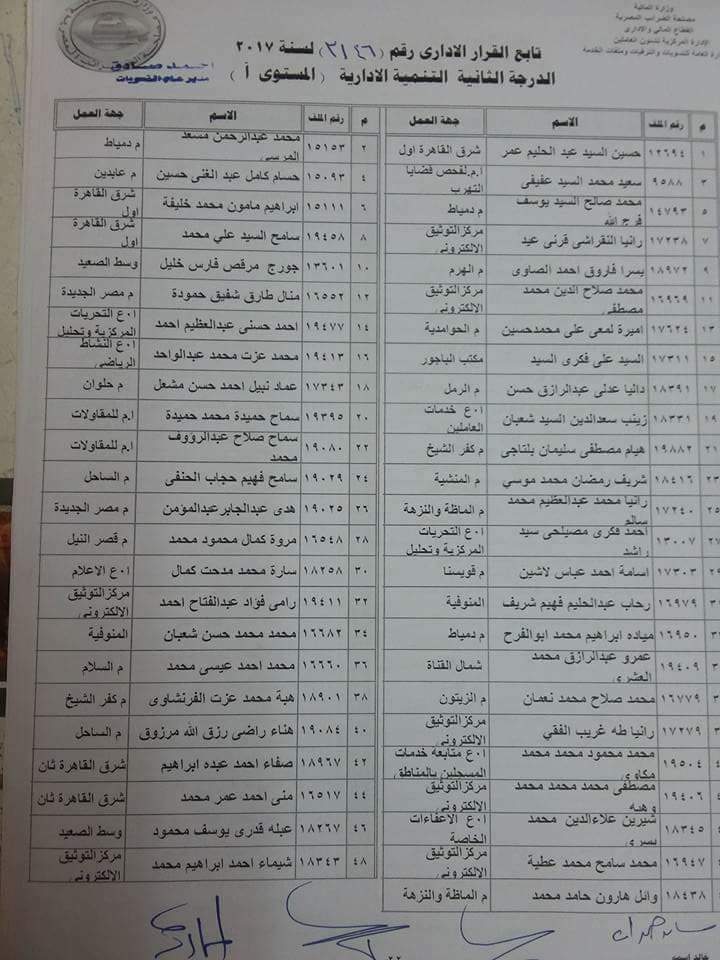 وزارة المالية
مصلحة الضرائب المصرية
القطاع المالى والادارى
الادارة المركزية لشئون العاملين
العامة للتسويات والترقيات وملفات الخدمة
تابع القرار الادارى رقم (٣١٤٦) لسنة ٢٠١٧
الدرجة الثانية التنمية الادارية (المستوى أ)
احمد صادق
مدير عام التسويات
م رقم الملف الاسم جهة العمل
١ ١٢٦٩٤ حسين السيد عبد الحليم عمر شرق القاهرة اول
٣ ٩٥٨٨ سعيد محمد السيد عفيفى ا.م.لفحص قضايا التهرب
٥ ١٤٧٩٣ محمد صالح السيد يوسف فرج الله م دمياط
٧ ١٧٢٣٨ رانيا النقراشى قرنى عيد مركزالتوثيق الالكترونى
٩ ١٨٩٧٢ يسرا فاروق احمد الصاوى م الهرم
١١ ١٦٩٦٩ محمد صلاح الدين محمد مصطفى مركزالتوثيق الالكترونى
١٣ ١٧٦٢٤ اميرة لمعى على محمدحسين م الحوامدية
١٥ ١٧٣١١ السيد على فكرى السيد مكتب الباجور
١٧ ١٨٣٩١ داليا عدلى عبدالرازق حسن م الرمل
١٩ ١٨٣٣١ زينب سعدالدين السيد شعبان ا٠ع خدمات العاملين
٢١ ١٩٨٨٢ هيام مصطفى سليمان بلتاجى م كفر الشيخ
٢٣ ١٨٤١٦ شريف رمضان محمد موسي م المنشية
٢٥ ١٧٢٤٠ رانيا محمد عبدالعظيم محمد سالم م الماظة والنزهة
٢٧ ١٣٠٠٧ احمد فكرى مصيلحى سيد راشد ا٠ع التحريات المركزية وتحليل
٢٩ ١٧٣٠٣ اسامة احمد عباس لاشين م قويسنا
١٦٩٧٩ رحاب عبدالحليم فهيم شريف المنوفية
١٦٩٥٠ مياده ابراهيم محمد ابوالفرح م دمياط
١٩٤٠٩ عمرو عبدالرازق محمد العشرى شمال القناة
١٦٧٧٩ محمد صلاح محمد نعمان م الزيتون
١٧٢٧٩ رانيا طه غريب الفقي مركزالتوثيق الالكترونى
١٩٥٠٤ محمد محمود محمد محمد مكاوى ا٠ع متابعة خدمات المسجلين بالمناطق
١٩٤٠٦ مصطفى محمد محمد محمد وهبه مركزالتوثيق الالكترونى
١٨٣٤٥ شيرين علاءالدين محمد يسرى ا٠ع الاعفاءات الخاصة
١٦٩٤٧ محمد سامح محمد عطية مركزالتوثيق الالكترونى
١٨٤٣٨ وائل هارون حامد محمد م الماظة والنزهة
م رقم الملف الاسم جهة العمل
٢ ١٥١٥٣ محمد عبدالرحمن مسعد المرسى م دمياط
٤ ١٥٠٩٣ حسام كامل عبد الغنى حسين م عابدين
٦ ١٥١١١ ابراهيم مامون محمد خليفة شرق القاهرة اول
٨ ١٩٤٥٨ سامح السيد علي محمد شرق القاهرة اول
١٠ ١٣٦٠١ جورج مرقص فارس خليل وسط الصعيد
١٢ ١٦٥٥٢ منال طارق شفيق حمودة م مصر الجديدة
١٤ ١٩٤٧٧ احمد حسنى عبدالعظيم احمد ا٠ع التحريات المركزية وتحليل
١٦ ١٩٤١٣ محمد عزت محمد عبدالواحد ا٠ع النشاط الرياضى
١٨ ١٧٣٤٣ عماد نبيل احمد حسن مشعل م حلوان
٢٠ ١٩٣٩٥ سماح حميدة محمد حميدة ا.م للمقاولات
٢٢ ١٩٠٨٠ سماح صلاح عبدالرؤوف محمد ا.م للمقاولات
٢٤ ١٩٠٢٩ سامح فهيم حجاب الحنفى م الساحل
٢٦ ١٩٠٢٥ هدى عبدالجابرعبدالمؤمن م مصر الجديدة
٢٨ ١٦٥٤٨ مروة كمال محمود محمد م قصر النيل
٣٠ ١٨٢٥٨ سارة محمد مدحت كمال ا٠ع الاعلام
٣٢ ١٩٤١١ رامى فؤاد عبدالفتاح احمد مركزالتوثيق الالكترونى
٣٤ ١٦٦٨٢ محمد محمد حسن شعبان المنوفية
٣٦ ١٦٦٦٠ محمد احمد عيسى محمد م السلام
٣٨ ١٨٩٠١ هبة محمد عزت الفرنشاوى م كفر الشيخ
٤٠ ١٩٠٨٤ هناء راضى رزق الله مرزوق م الساحل
٤٢ ١٨٩٦٧ صفاء احمد عبده ابراهيم شرق القاهرة ثان
٤٤ ١٦٥١٧ منى احمد عمر محمد شرق القاهرة ثان
٤٦ ١٨٢٦٧ عبله قدرى يوسف محمود وسط الصعيد
٤٨ ١٨٣٤٣ شيماء احمد ابراهيم محمد مركزالتوثيق الالكترونى